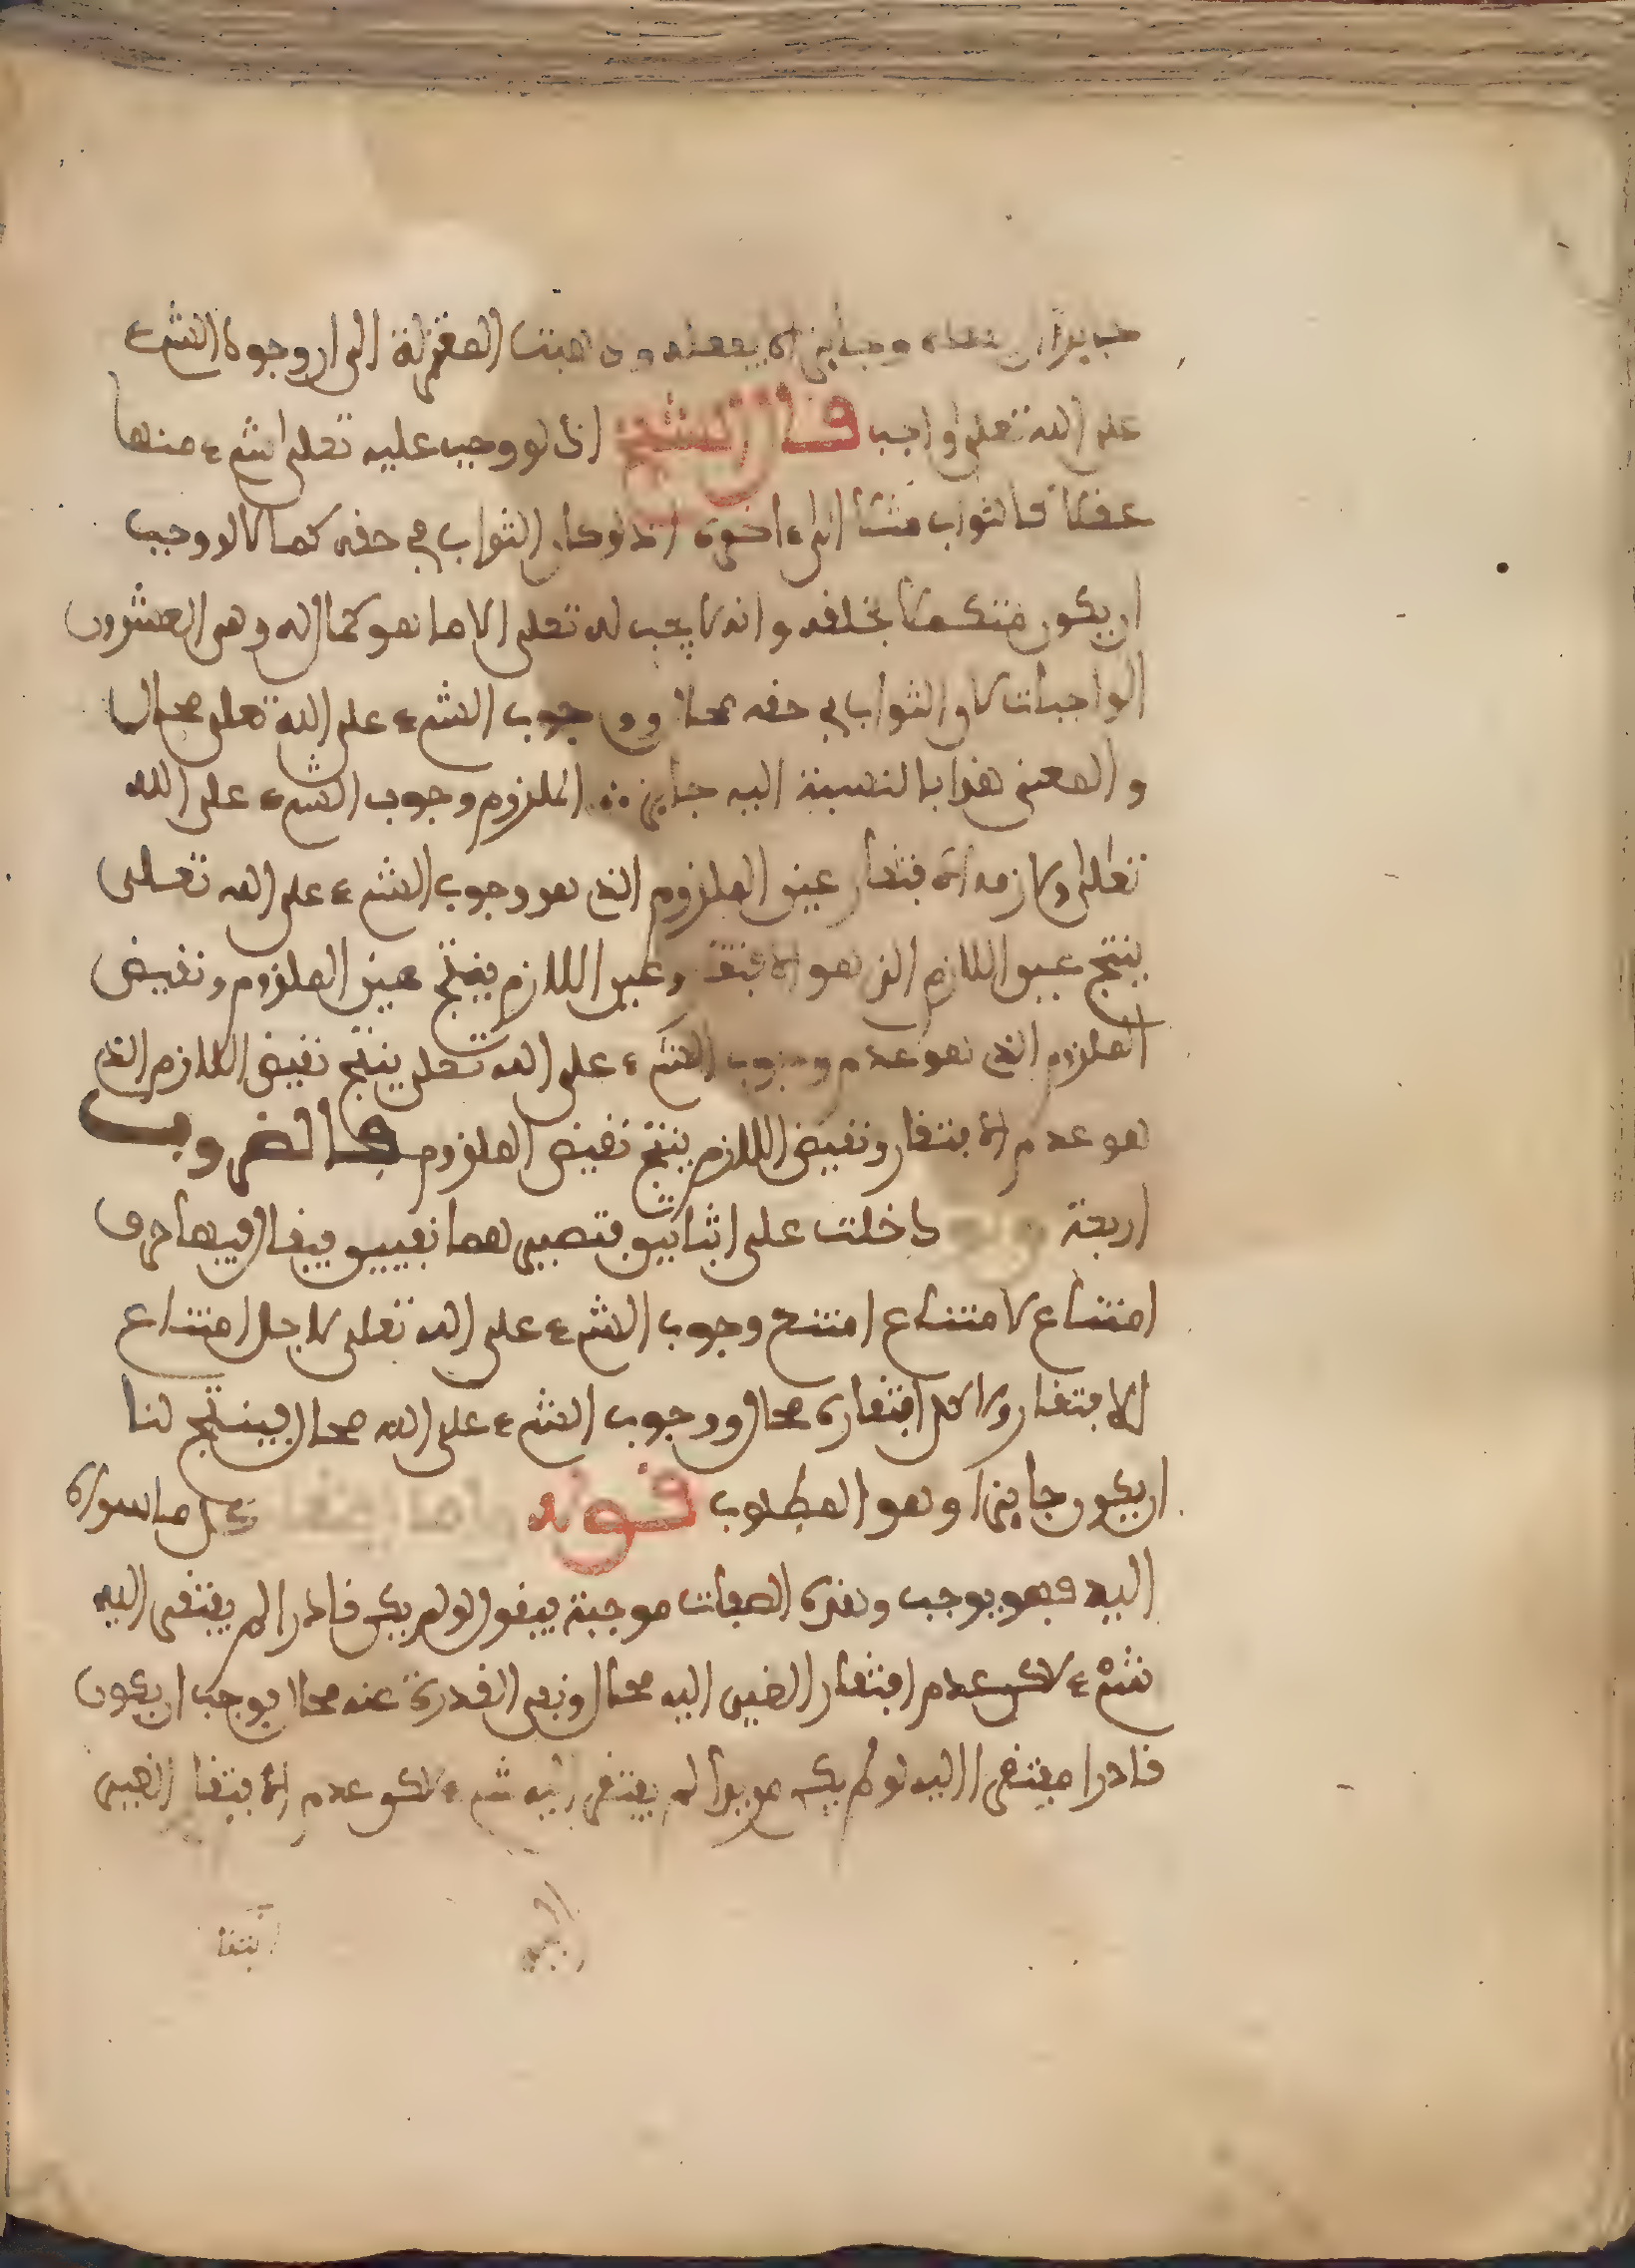 يفعله وذهبت المعتزلة الى ان وجود الشيء
على الله تعلى واجب قال الشيخ اذ لو وجب عليه تعلى شيء منها
عقلا كالثواب مثلا اذ لو كان الثواب في حقه كمالا لوجب
ان يكون متكملا بخلقه وانه لا يجب له تعلى الا ما هو كمال له وهي العشرون
الواجبات لان الثواب في حقه محال ووجوب الشيء على الله تعلى محال
و المعنى هذا بالنسبة اليه جايز ∴ الملزوم وجوب الشيء على الله
تعلى ولازمه الافتقار عين الملزوم الذي هو وجوب الشيء على الله تعلى
ينتج عين اللازم الذي هو الافتقار وعين اللازم ينتج عين الملزوم ونقيض
الملزوم الذي هو عدم وجوب الشيء على الله تعلى ينتج نقيض اللازم الذي
هو عدم الافتقار ونقيض اللازم ينتج نقيض الملزوم فالضروب
اربعة ولو دخلت على اثباتين فتصييرهما نفيين فيقال فيها حرف
امتناع لامتناع امتنع وجوب الشيء على الله تعلى لاجل امتناع
الافتقار ولاكن افتقاره محال ووجوب الشيء على الله محال فينتج لنا
ان يكون جايزا وهو المطلوب قوله واما افتقار كل ما سواه
اليه فهو يوجب وهذه الصفات موجبة فيقول لو لم يكن قادرا لم يفتقر اليه
شيء لاكن عدم افتقار الغير اليه محال ونفي القدرة عنه محال فوجب ان يكون
قادرا مفتقرا اليه لو لم يكن مريدا لم يفتقر اليه شيء لاكن عدم الافتقا الغير
افتقا